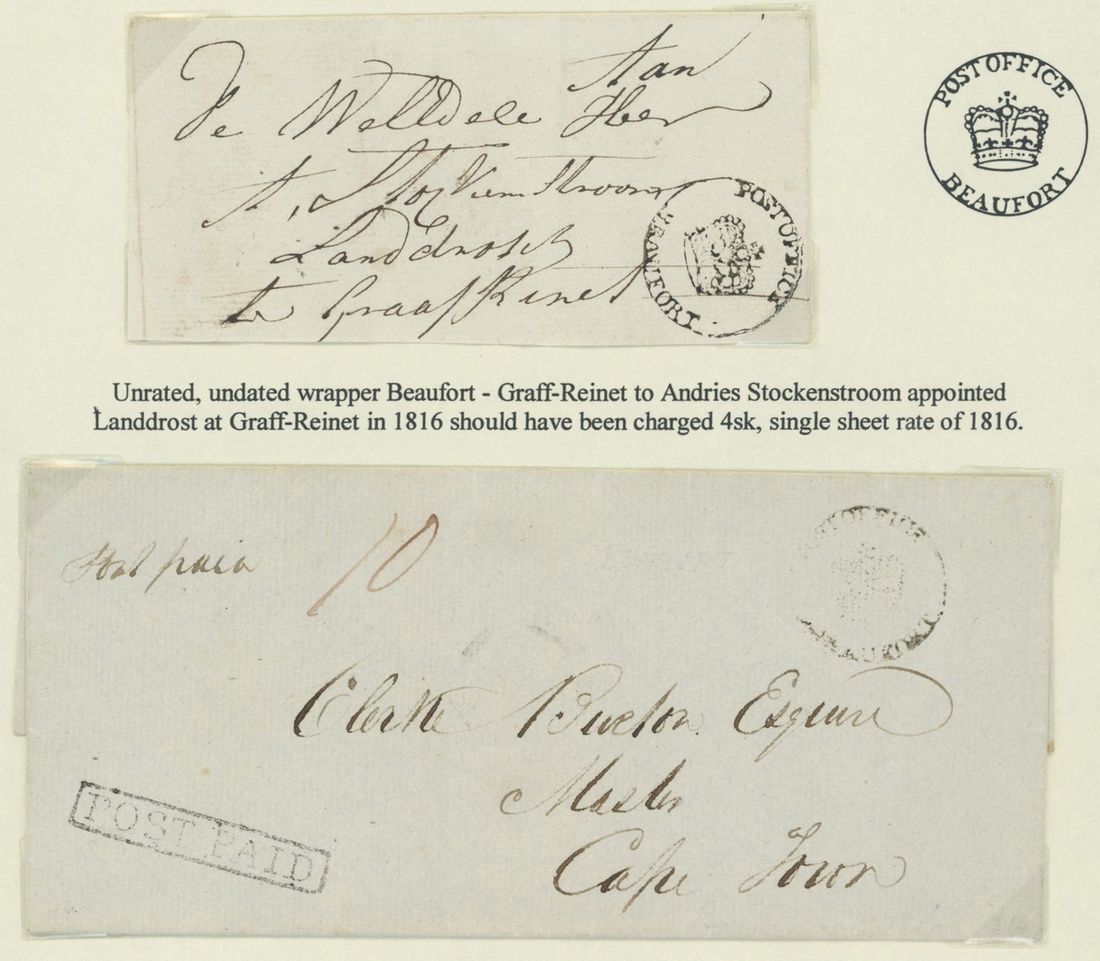 Aan
De WellEdele Heer
A, Stokkenstroom
Landdrost
te Graaff Rinet
POST OFFICE
BEAUFORT
POST OFFICE
BEAUFORT
Unrated, undated wrapper Beaufort - Graff-Reinet to Andries Stockenstroom appointed
Landdrost at Graff-Reinet in 1816 should have been charged 4sk, single sheet rate of 1816.
Post paid
10
POST OFFICE
BEAUFORT
Clerke Burton Esquire
Master
Cape Town
POST PAID